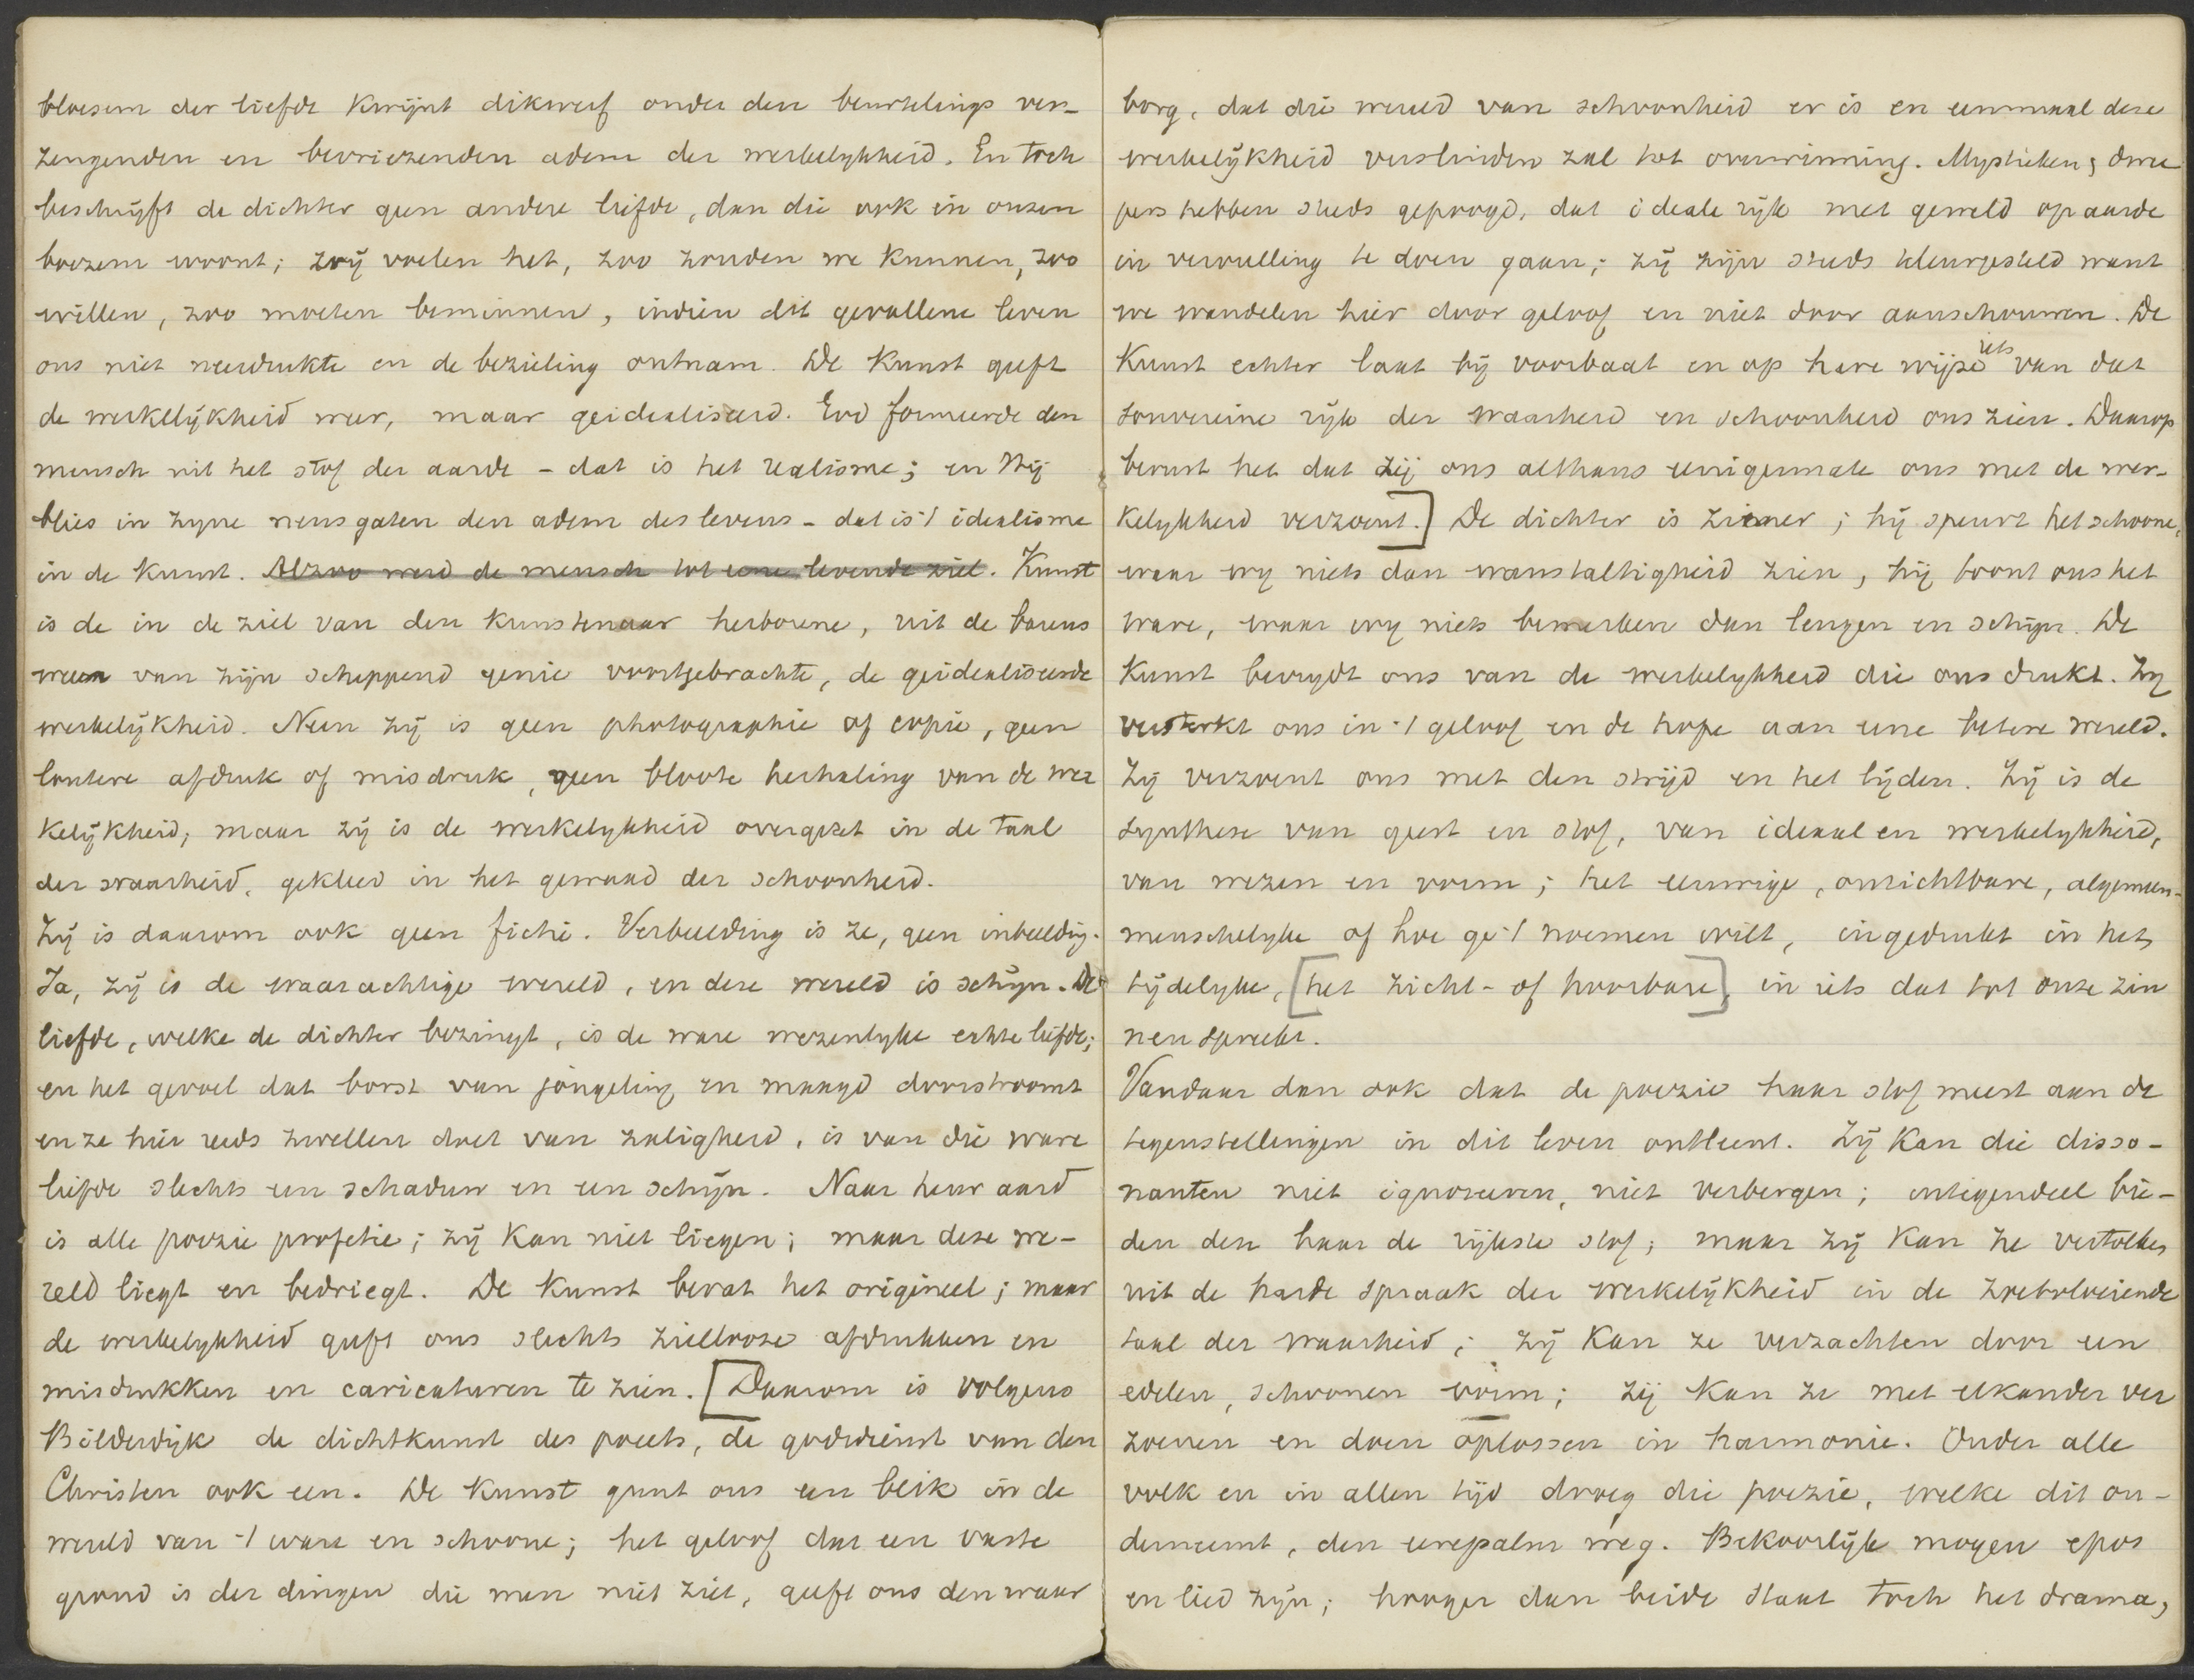 bloesem der liefde kwijnt dikwerf onder den beurtelings ver-
zengenden en bevriezenden adem der werkelykheid. En toch
beschrijft de dichter geen andere liefde, dan die ook in onzen
boezem woont; wij voelen het, zoo zouden we kunnen, zoo
willen, zoo moeten beminnen, indien dit gevallene leven
ons niet neerdrukte en de bezieling ontnam. De kunst geeft
de werkelijkheid weer, maar geidealiseerd. God formeerde den
mensch uit het stof der aarde - dat is het realisme; en Hij
blies in zyne neusgaten den adem des levens - dat is 't idealisme
in de kunst. Alzoo werd de mensch tot eene levende ziel. Kunst
is de in de ziel van den kunstenaar herborene, uit de barens
weeen van zijn scheppend genie voortgebrachte, de geidealiseerde
werkelijkheid. Neen zij is geen photographie of copie, geen
loutere afdruk of misdruk, geen bloote herhaling van de wer
kelijkheid; maar zij is de werkelykheid overgezet in de taal
der waarheid, gekleed in het gewaad der schoonheid.
Zij is daarom ook geen fictie. Verbeelding is ze, geen inbeeldig.
Ja, zij is de waarachtige wereld, en deze wereld is schijn. De
liefde, welke de dichter bezingt, is de ware wezenlyke echte liefde;
en het gevoel dat borst van jongeling en maagd doorstroomt
en ze hier reeds zwellen doet van zaligheid, is van die ware
liefde slechts een schaduw en een schijn. Naar heur aard
is alle poezie profetie; zij kan niet liegen; maar deze we-
reld liegt en bedriegt. De kunst bevat het origineel; maar
de werkelykheid geeft ons slechts ziellooze afdrukken en
misdrukken en caricaturen te zien. [Daarom is volgens
Bilderdijk de dichtkunst des poeets, de godsdienst van den
Christen ook een. De kunst gunt ons een blik in de
wereld van 't ware en schoone; het geloof dat een vaste
grond is der dingen die men niet ziet, geeft ons den waar
borg, dat die wereld van schoonheid er is en eenmaal deze
werkelijkheid verslinden zal tot overwinning. Mystieken, dwee
pers hebben steeds gepoogd, dat ideale rijk met geweld op aarde
in vervulling te doen gaan; zij zijn steeds teleurgesteld want
we wandelen hier door geloof en niet door aanschouwen. De
Kunst echter laat bij voorbaat en op hare wijze iets van dat
souvereine rijk der waarheid en schoonheid ons zien. Daarop
berust het dat zij ons althans eenigermate ons met de wer-
kelykheid verzoent.] De dichter is ziener; hij speurt het schoone,
waar wy niets dan wanstaltigheid zien, hij toont ons het
ware, waar wy niets bemerken dan leugen en schijn. De
Kunst bevrydt ons van de werkelykheid die ons drukt. Zy
versterkt ons in 't geloof en de hope aan eene betere wereld.
Zij verzoent ons met den strijd en het lijden. Zij is de
synthese van geest en stof, van ideaal en werkelykheid,
van wezen en vorm; het eeuwige, onzichtbare, algemeen-
menschelyke of hoe ge 't noemen wilt, ingedrukt in het
tijdelyke, [het zicht- of hoorbare], in iets dat tot onze zin
nen spreekt.
Vandaar dan ook dat de poezie haar stof meest aan de
tegenstellingen in dit leven ontleent. Zij kan die disso-
nanten niet ignoreeren, niet verbergen; integendeel bie-
den den haar de rijkste stof; maar zij kan ze vertolken
uit de harde spraak der werkelijkheid in de zoetvloeiende
taal der waarheid; zij kan ze verzachten door een
edelen, schoonen vorm; zij kan ze met elkander ver
zoenen en doen oplossen in harmonie. Onder alle
volk en in allen tijd droeg die poezie, welke dit on-
derneemt, den eerepalm weg. Bekoorlijk mogen epos
en lied zijn; hooger dan beide staat toch het drama,